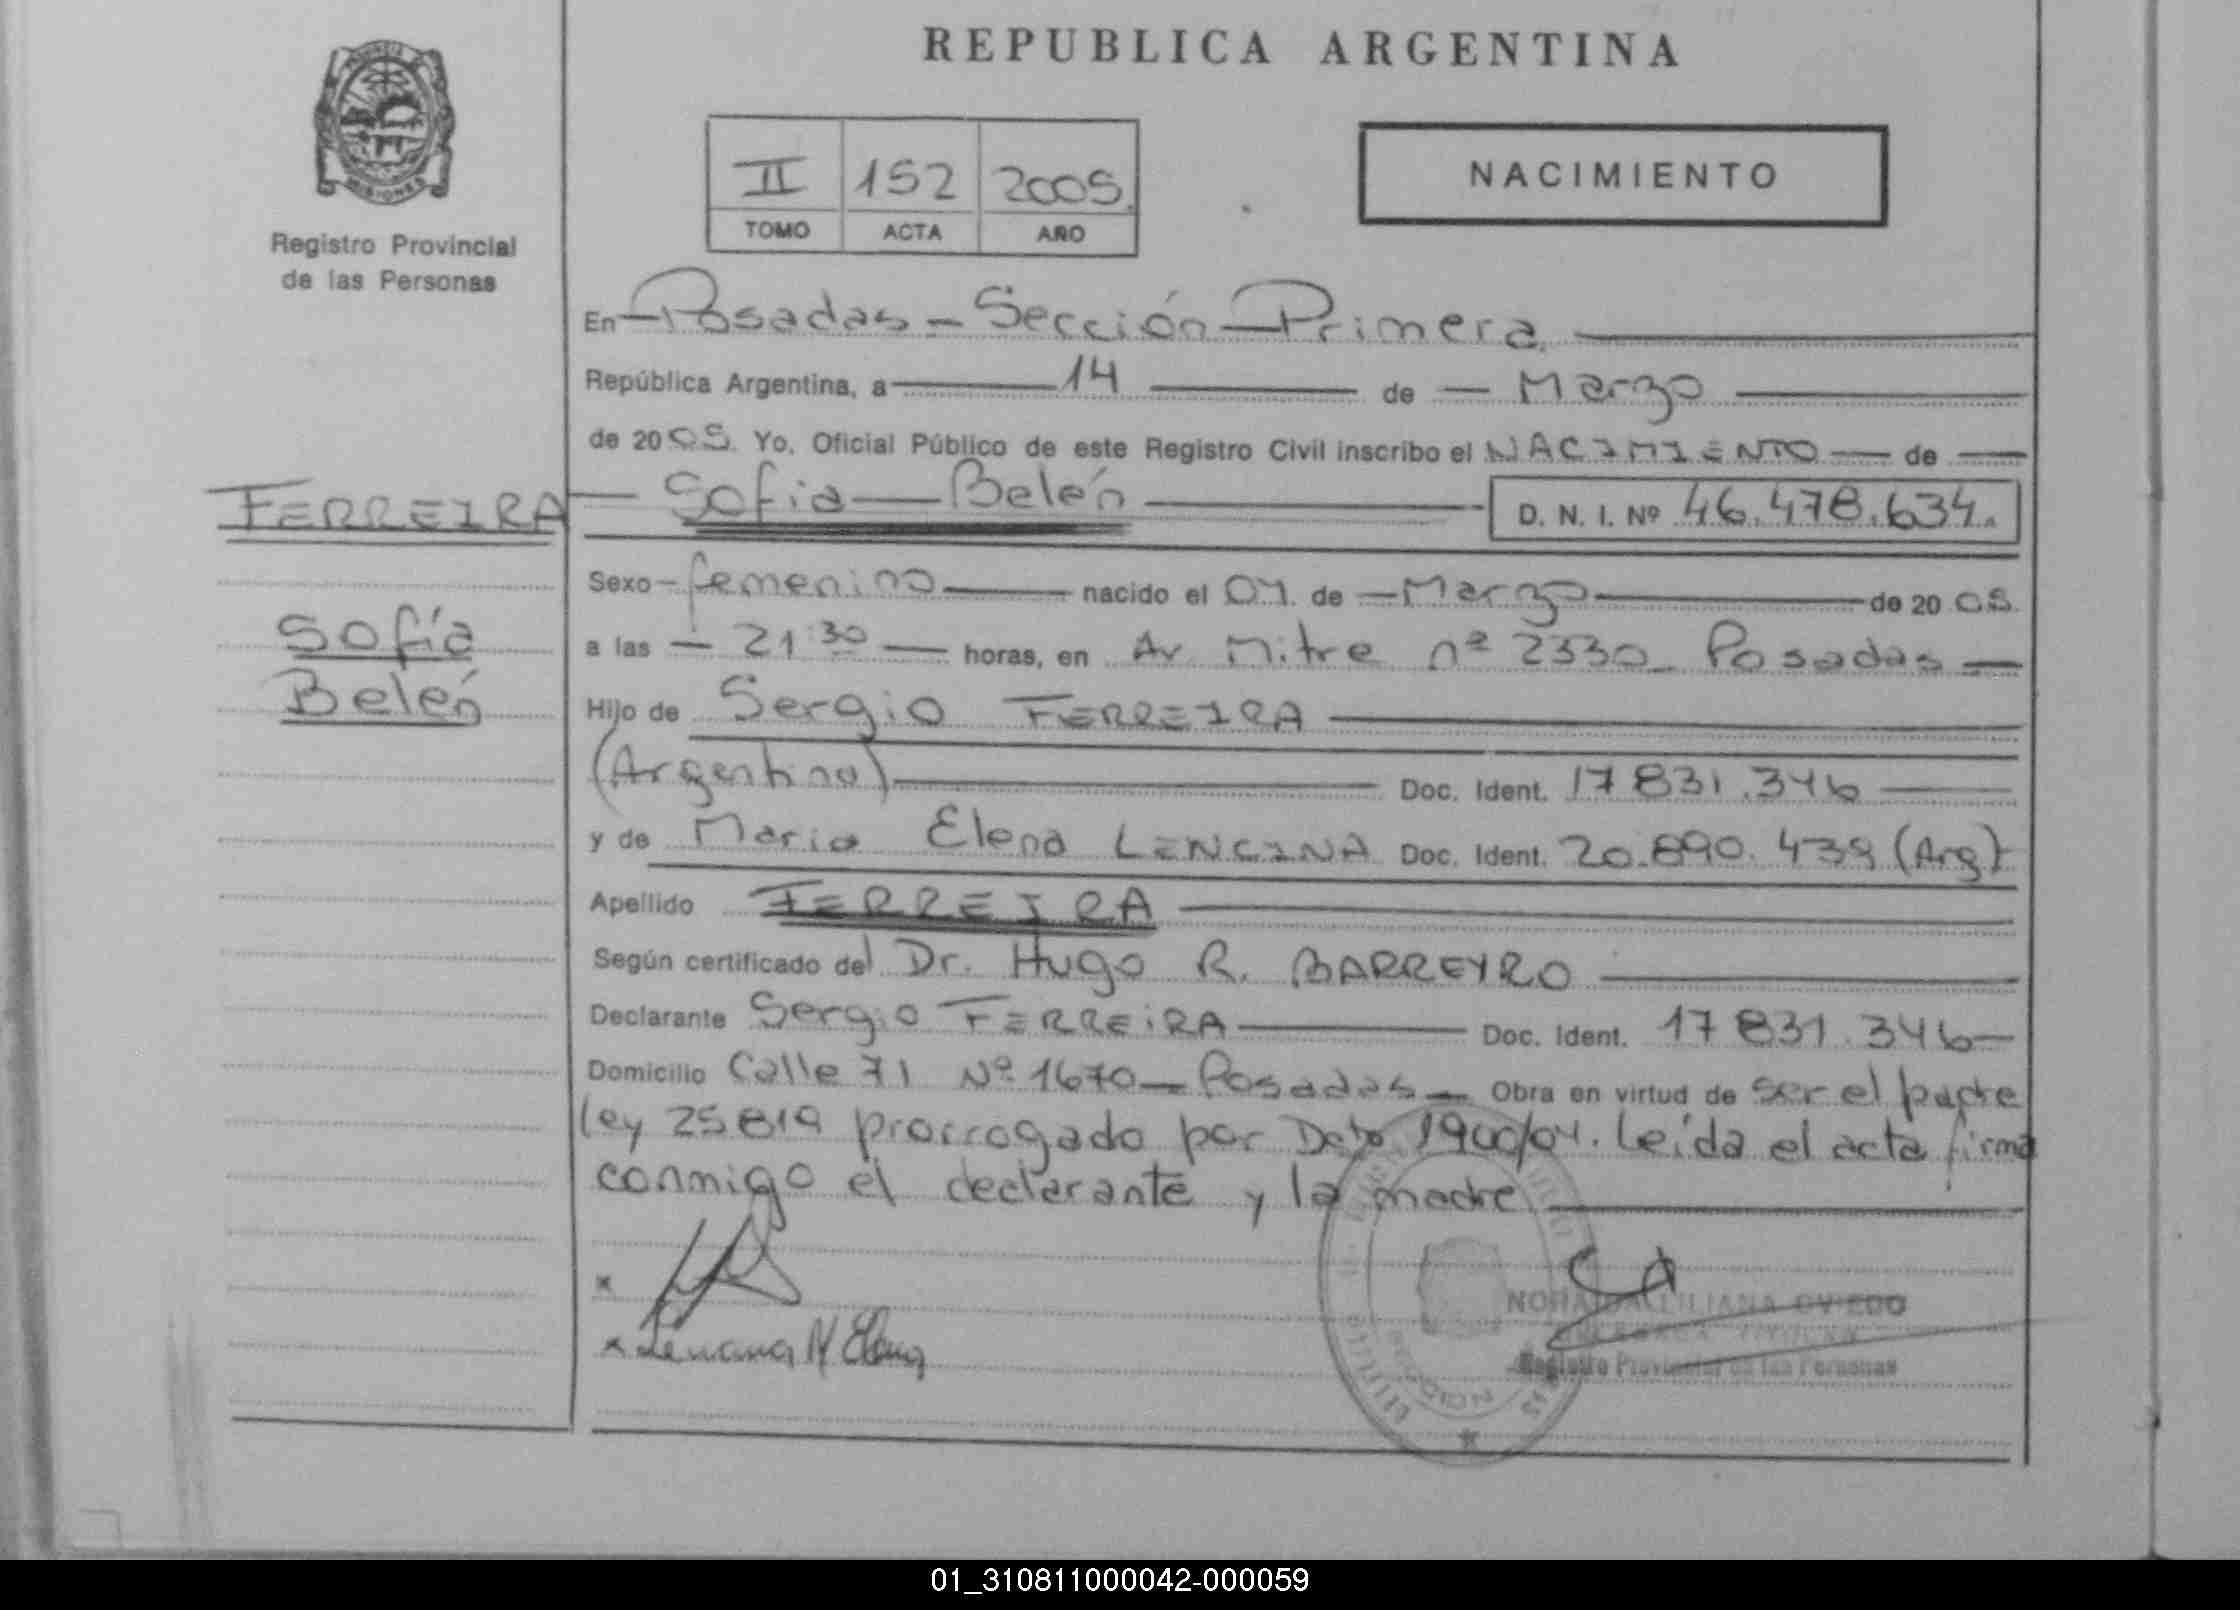 REPUBLICA ARGENTINA
NACIMIENTO
II 152 2005.
TOMO ACTA AÑO
MISIONES
Registro Provincial
de las Personas
En Posadas - Sección Primera.
República Argentina, a 14 de Marzo
de 2005. Yo, Oficial Público de este Registro Civil inscribo el NACIMIENTO de
FERREIRA Sofia Belén D. N. I. Nº 46.478.634.
Sofía
Belén
Sexo femenino nacido el 07. de Marzo de 2005.
a las 21:30 horas, en Av. Mitre nº 2330 Posadas
Hijo de Sergio FERREIRA
(Argentino) Doc. Ident. 17 831.346
y de Maria Elena LENCINA Doc. Ident. 20.890.439 (Arg)
Apellido FERREIRA
Según certificado del Dr. Hugo R. BARREYRO
Declarante Sergio FERREIRA Doc. Ident. 17 831.346
Domicilio Calle 71 Nº 1670 - Posadas - Obra en virtud de ser el padre
ley 25819 prorrogado por Dcto 1900/04. Leída el acta firma
conmigo el declarante y la madre
x
x Lencina M Elena
LILIANA OVIEDO
Registro Provincial de las Personas
01_310811000042-000059